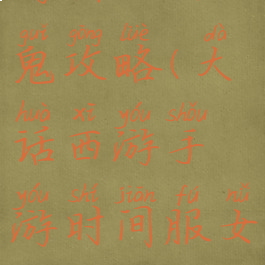 guǐ gōng lüè dà
鬼攻略(大
huà xī yóu shǒu
话西游手
yóu shí jiān fú nǚ
游时间服女